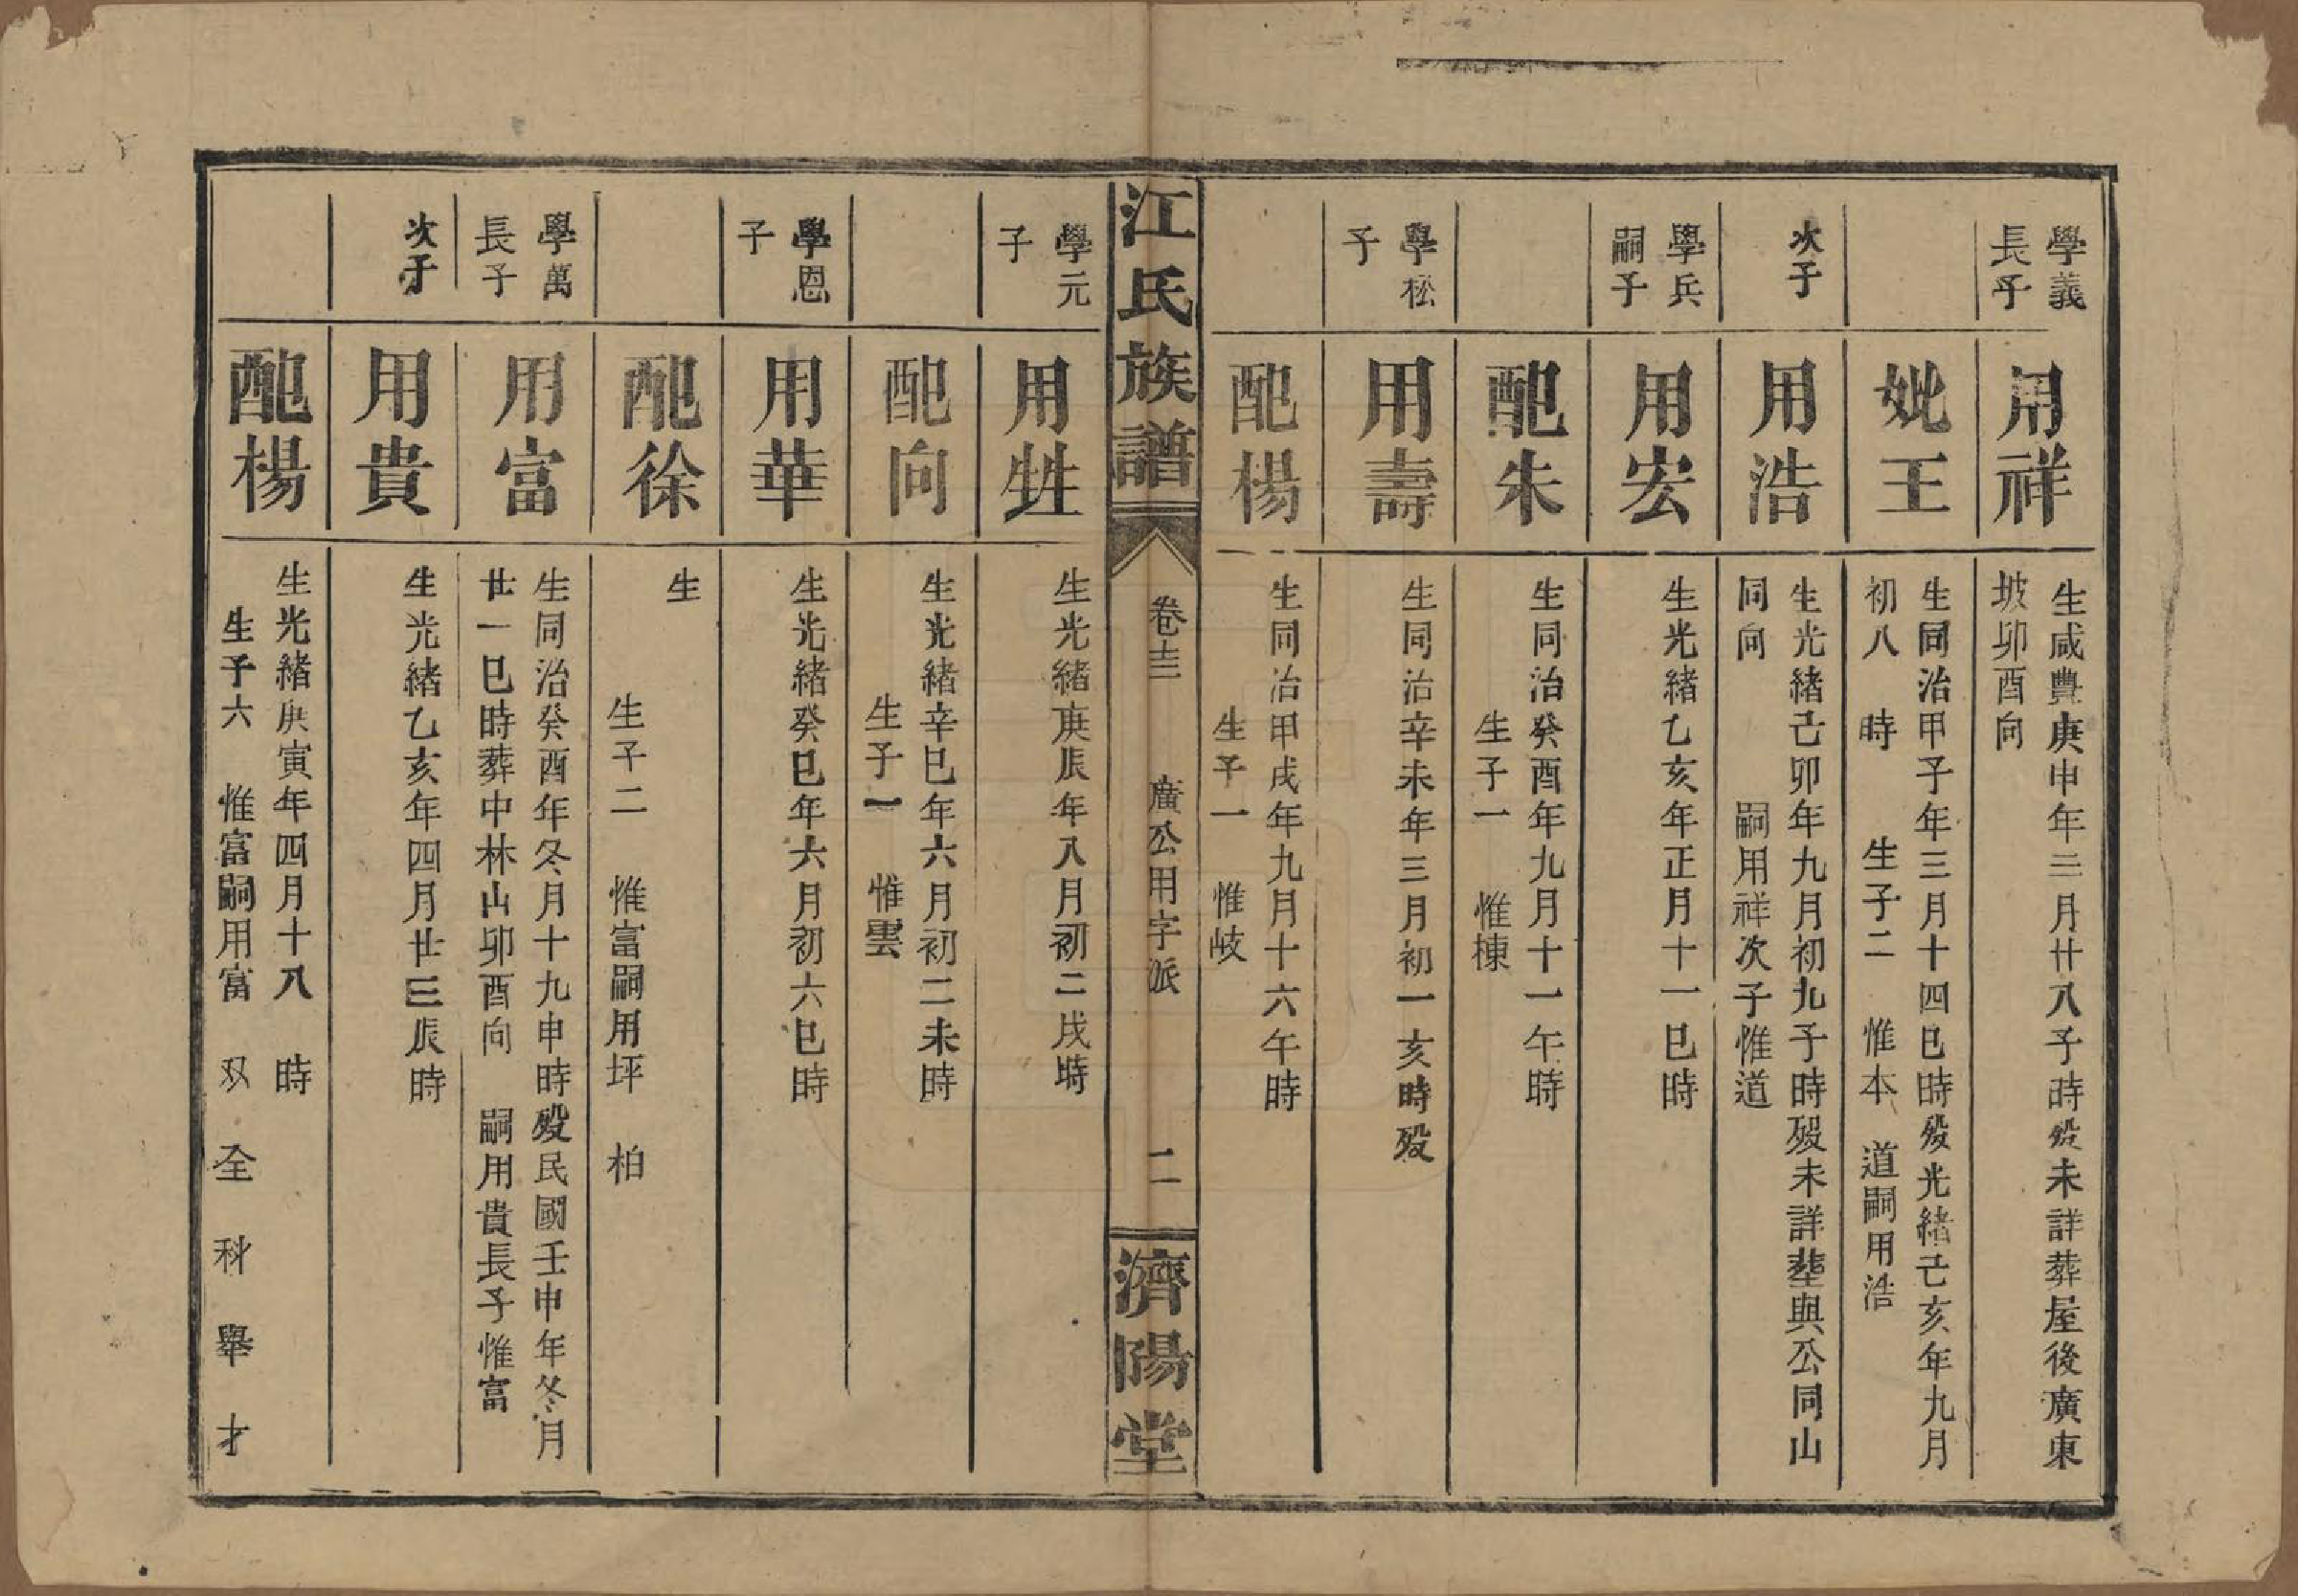 學義
長子
用祥
生咸豐庚申年三月廿八子時殁未詳葬屋後廣東
坡卯酉向
妣王
生同治甲子年三月十四巳時殁光緒己亥年九月
初八 時 生子二 惟本 道嗣用浩
次子
用浩
生光緒己卯年九月初九子時殁未詳塟與公同山
同向 嗣用祥次子惟道
學兵
嗣子
用宏
生光緒乙亥年正月十一巳時
配朱
生同治癸酉年九月十一午時
生子一 惟棟
學松
子
用壽
生同治辛未年三月初一亥時殁
配楊
生同治甲戌年九月十六午時
生子一 惟岐
江氏族譜
卷十三 廣公用字派 二
濟陽堂
學元
子
用甡
生光緒庚辰年八月初二戌時
配向
生光緒辛巳年六月初二未時
生子一 惟雲
學恩
子
用華
生光緒癸巳年六月初六巳時
配徐
生
生子二 惟富嗣用坪 柏
學萬
長子
用富
生同治癸酉年冬月十九申時殁民國壬申年冬月
廿一巳時葬中林山卯酉向 嗣用貴長子惟富
次子
用貴
生光緒乙亥年四月廿三辰時
配楊
生光緒庚寅年四月十八 時
生子六 惟富嗣用富 双 全 科 舉 才